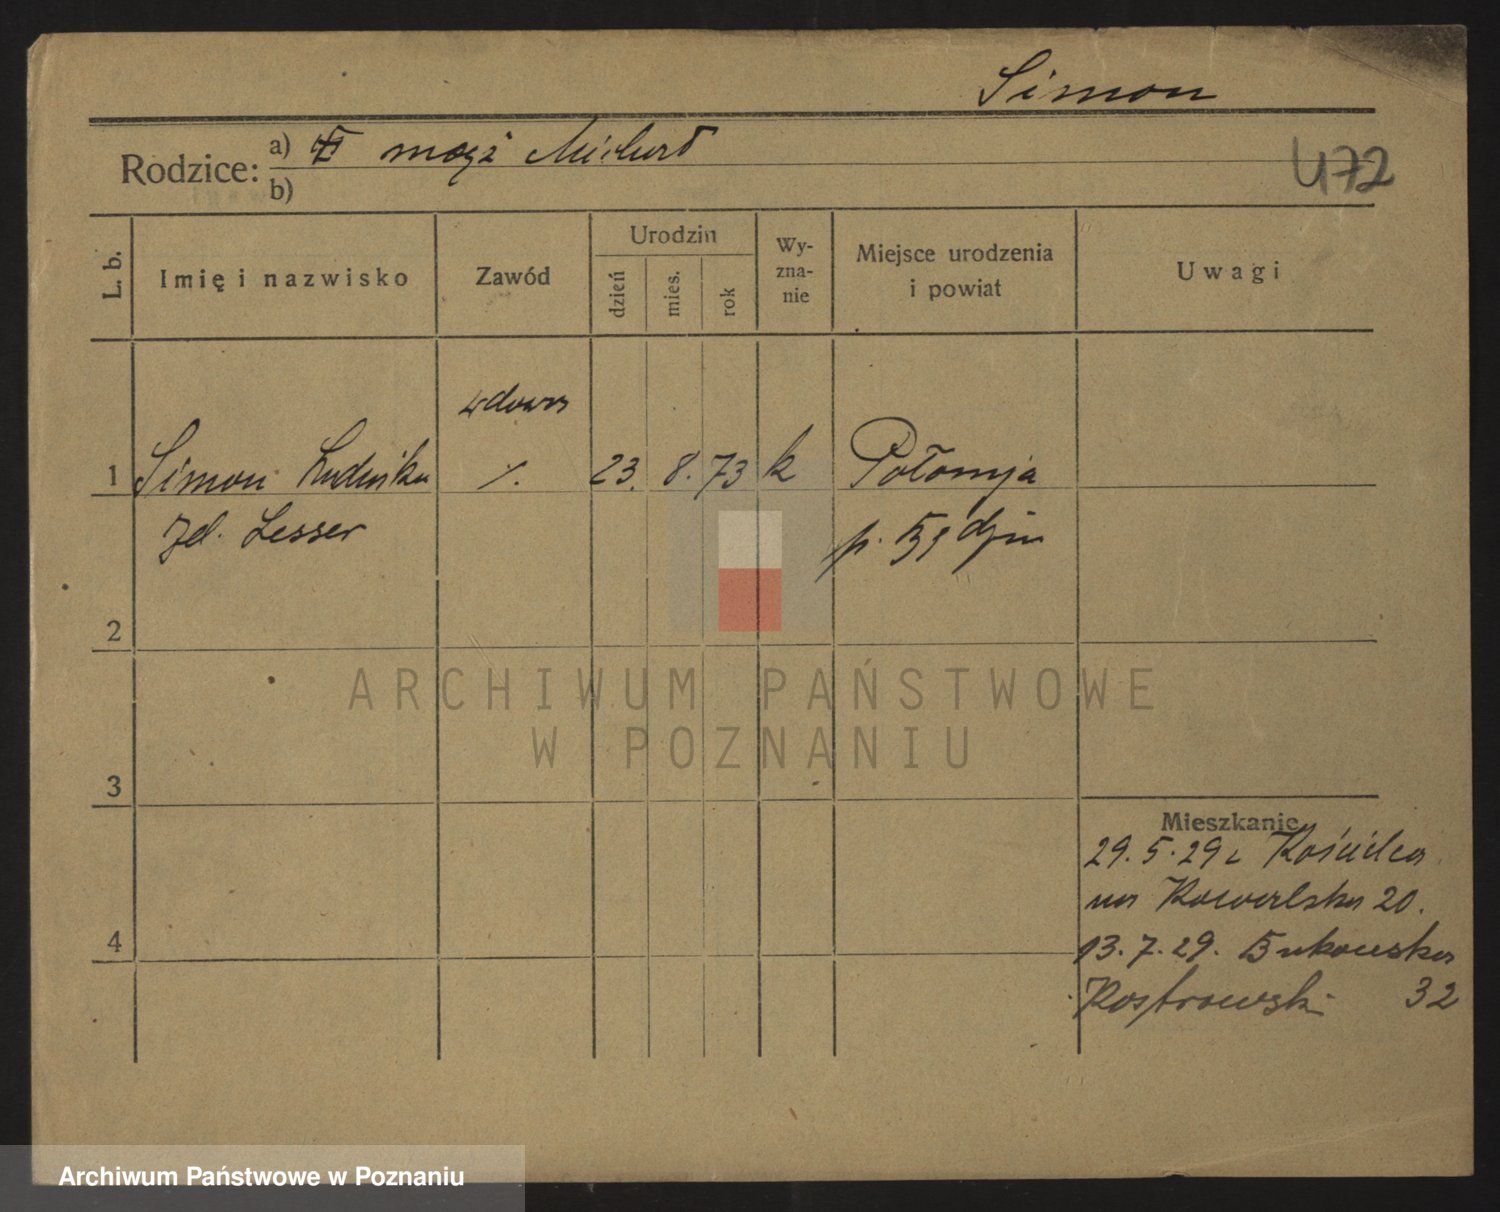 Simon
Rodzice: a) mąż Michał
b)
472
L. b.
Imię i nazwisko
Zawód
Urodzin
dzień
mies.
rok
Wy-
zna-
nie
Miejsce urodzenia
i powiat
Uwagi
wdowa
1 Simon Ludwika ·/. 23. 8. 73 k Połomja
zd. Lesser p.
2
3
4
Mieszkanie
29. 5. 29 z Kościelca
na 20.
13. 7. 29. Bukowska
32
ARCHIWUM PAŃSTWOWE
W POZNANIU
Archiwum Państwowe w Poznaniu